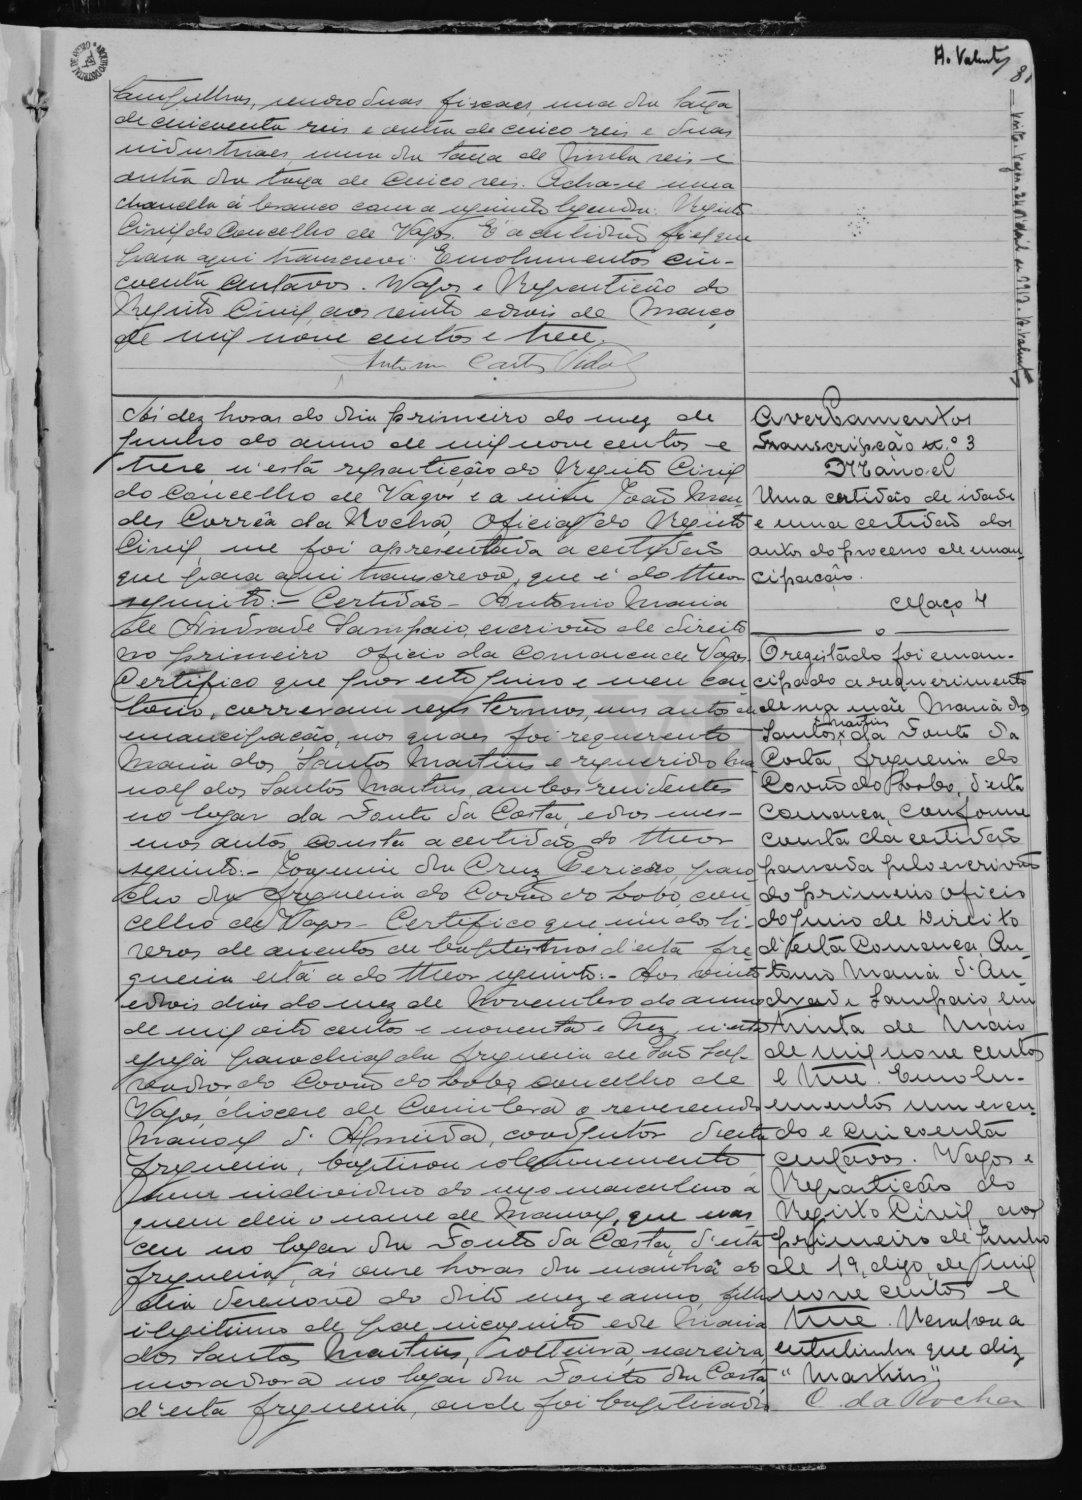 A. Valente
8
estampilhas, sendo duas fiscaes, uma da taxa
de cincoenta reis e outra de cinco reis e duas
industriaes, uma da taxa de trinta reis e
outra da taxa de cinco reis. Acha-se uma
chancella a branco com a seguinte legenda: Registo
Civil do Concelho de Vagos. E' a certidão fiel que
para aqui transcrevi. Emolumentos cin-
coenta centavos. Vagos e Repartição do
Registo Civil, aos vinte e dois de Março
de mil nove centos e treze.
Antonio Carlos Vidal
Ás dez horas do dia primeiro do mez de
Junho do anno de mil nove centos e
treze n'esta repartição do Registo Civil
do concelho de Vagos e a mim João Men-
des Corrêa da Rocha, Oficial do Registo
Civil, me foi apresentada a certidão
que para aqui transcrevo, que é do theor
seguinte:- Certidão - Antonio Maria
de Andrade Sampaio, escrivão de direito
no primeiro oficio da comarca de Vagos.
Certifico que por este juizo e meu car-
torio, correram seus termos, uns autos de
emancipação, nos quaes foi requerente
Maria dos Santos Martins e requerido Ma-
noel dos Santos Martins, ambos residentes
no logar da Fonte da Costa, e dos mes-
mos autos, consta a certidão do theor
seguinte:- Joaquim da Cruz Pericão, paro-
cho da freguezia do Covão do Lobo, con-
celho de Vagos - Certifico que um dos li-
vros de assentos de baptismos d'esta fre-
guezia está o do theor seguinte:- Aos vinte
e dois dias do mez de Novembro do anno
de mil oito centos e noventa e trez, n'esta
egreja parochial da freguezia de São Sal-
vador do Covão do Lobo, concelho de
Vagos, diocese de Coimbra o reverendo
Manoel d'Almeida, coadjutor d'esta
freguezia, baptisou solemnemente
um individuo do sexo masculino a
quem deu o nome de Manoel, que nas-
ceu no logar da Fonte da Costa, d'esta
freguezia, ás onze horas da manhã do
dia dezenove do dito mez e anno, filho
ilegitimo de pae incognito e de Maria
dos Santos Martins, solteira,
moradora no logar da Fonte da Costa
d'esta freguezia, onde foi baptisada
Averbamentos
Transcripção n.º 3
Manoel
Uma certidão de idade
e uma certidão dos
autos do processo de eman-
cipação.
Maço 4
O registado foi eman-
cipado a requerimento
de sua mãe Maria dos
Martins
Santos, da Fonte da
Costa, freguezia do
Covão do Lobo, d'esta
comarca, conforme
consta da certidão
passada pelo escrivão
do primeiro oficio
do juizo de Direito
d'esta Comarca, An-
tonio Maria d'An-
drade Sampaio, em
trinta de Maio
de mil nove centos
e treze. Emolu-
mentos um escu-
do e cincoenta
centavos. Vagos e
Repartição do
Registo Civil, aos
primeiro de Junho
de 19, digo, de mil
nove centos e
treze. Ressalvo a
entrelinha que diz
"Martins"
C. da Rocha